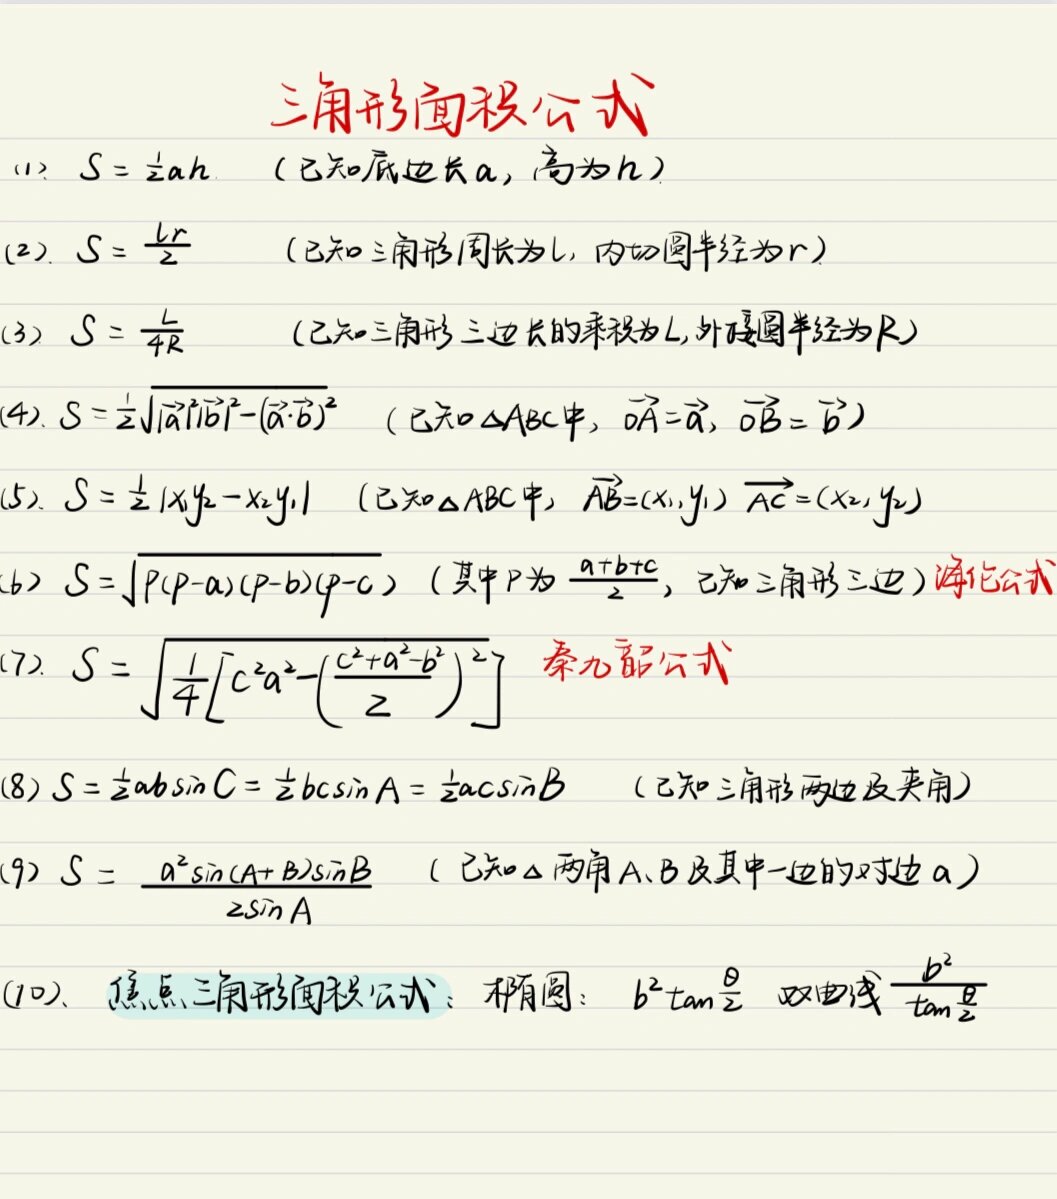 三角形面积公式
(1). S = ½ah (已知底边长a, 高为h)
(2). S = Lr/2 (已知三角形周长为L, 内切圆半径为r)
(3) S = L/4R (已知三角形三边长的乘积为L, 外接圆半径为R)
(4). S = ½√(|a⃗|²|b⃗|²-(a⃗·b⃗)²) (已知△ABC中, OA⃗=a⃗, OB⃗=b⃗)
(5). S = ½|x₁y₂-x₂y₁| (已知△ABC中, AB⃗=(x₁, y₁) AC⃗=(x₂, y₂)
(6) S = √(P(P-a)(P-b)(P-c)) (其中P为 (a+b+c)/2, 已知三角形三边) 海伦公式
(7). S = √(1/4[c²a²-((c²+a²-b²)/2)²]) 秦九韶公式
(8) S = ½absinC = ½bcsinA = ½acsinB (已知三角形两边及夹角)
(9) S = a²sin(A+B)sinB/2sinA (已知△两角A、B及其中一边的对边a)
(10). 焦点三角形面积公式: 椭圆: b²tan θ/2 双曲线 b²/tan θ/2